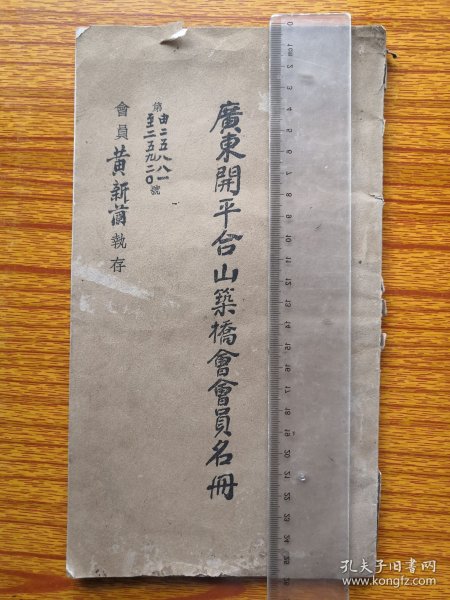 廣東開平台山築橋會會員名冊
第由二五八八一
至二五九二〇號
會員黃新蕳執存
孔夫子旧书网
www.kongfz.com